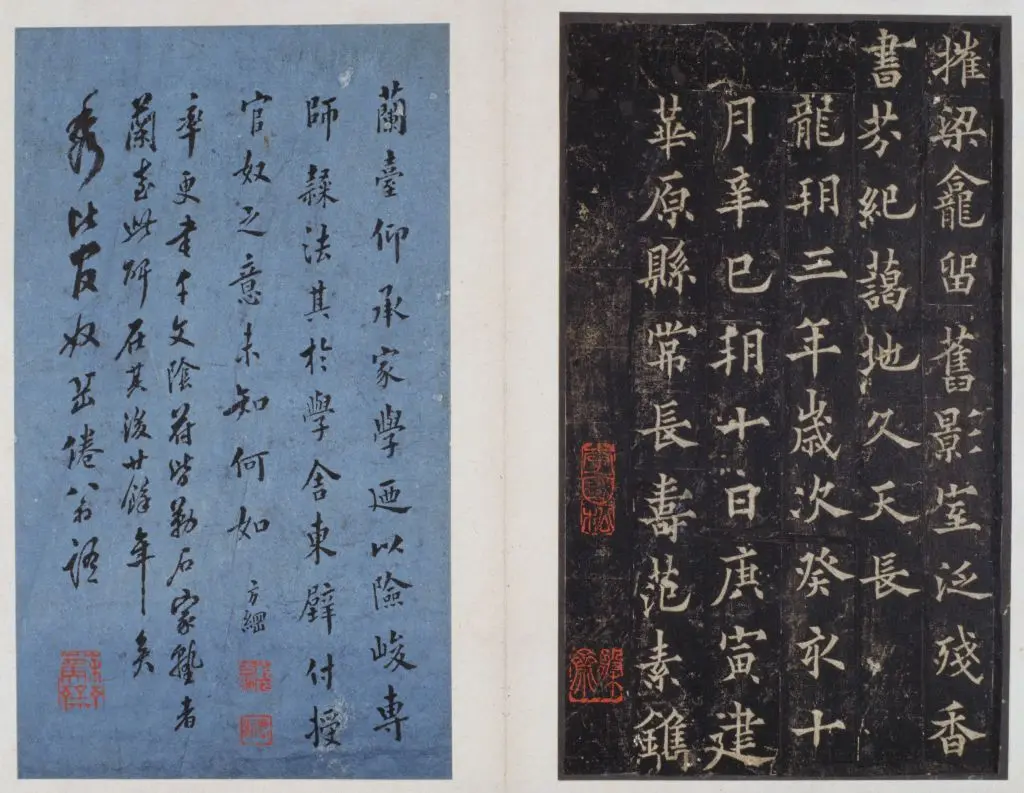 摧梁龕留舊影室泛殘香
書芬紀藹地久天長
龍朔三年歲次癸亥十
月辛巳朔十日庚寅建
華原縣常長壽范素鐫
李國松
蘭臺仰承家學迺以險峻專
師隸法其於學舍東壁付授
官奴之意未知何如 方綱
率更書千文陰符皆勒石家塾者
蘭臺此碑在其後廿餘年矣
秀比官奴出倦翁語